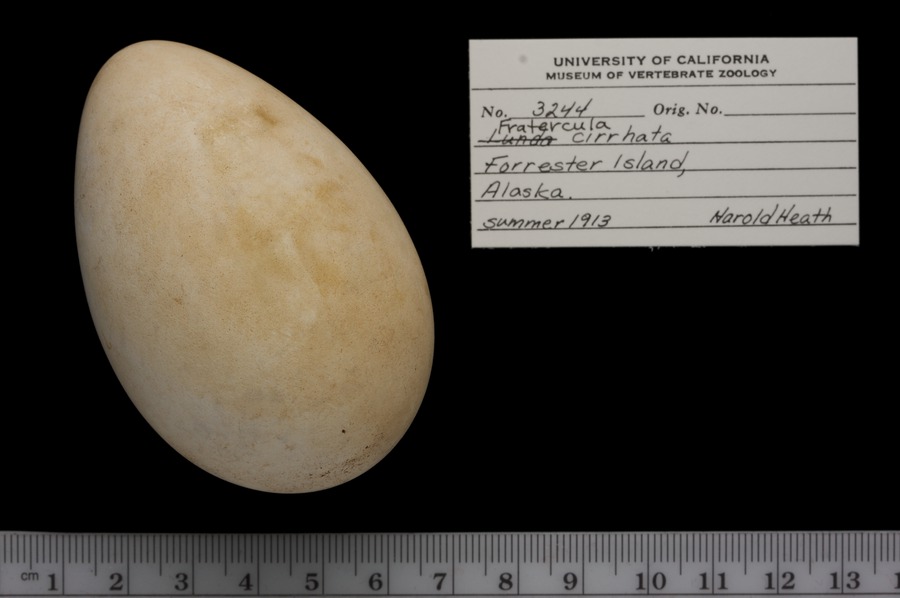 UNIVERSITY OF CALIFORNIA
MUSEUM OF VERTEBRATE ZOOLOGY
No. 3244 Orig. No.
Fratercula
Lunda cirrhata
Forrester Island,
Alaska.
summer 1913 Harold Heath
cm 1 2 3 4 5 6 7 8 9 10 11 12 13